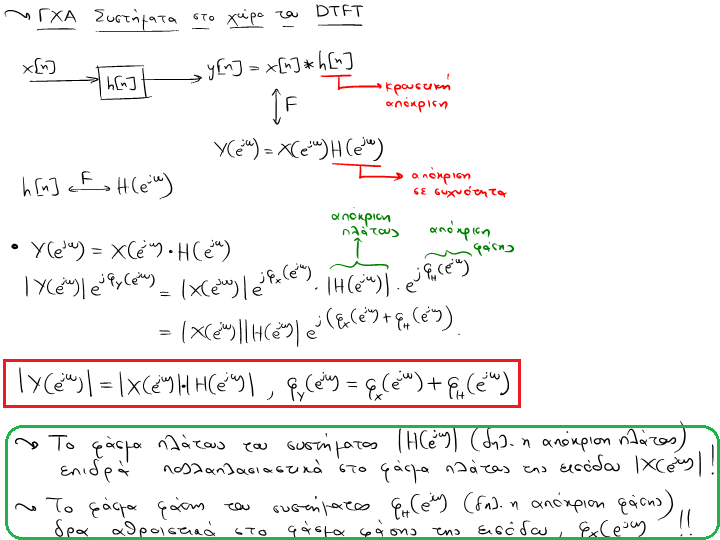 ~ ΓΧΑ Συστήματα στο χώρο του DTFT
x[n] h[n] y[n] = x[n] * h[n]
κρουστική
απόκριση
F
Y(e^{jω}) = X(e^{jω}) H(e^{jω})
απόκριση
σε συχνότητα
h[n] ⟷ F H(e^{jω})
απόκριση πλάτους
απόκριση φάσης
• Y(e^{jω}) = X(e^{jω}) · H(e^{jω})
|Y(e^{jω})| e^{jφ_Y(e^{jω})} = |X(e^{jω})| e^{jφ_X(e^{jω})} · |H(e^{jω})| · e^{jφ_H(e^{jω})}
= |X(e^{jω})||H(e^{jω})| e^{j(φ_X(e^{jω}) + φ_H(e^{jω}))}.
|Y(e^{jω})| = |X(e^{jω})|·|H(e^{jω})| , φ_Y(e^{jω}) = φ_X(e^{jω}) + φ_H(e^{jω})
~ Το φάσμα πλάτους του συστήματος |H(e^{jω})| (δηλ. η απόκριση πλάτους)
επιδρά πολλαπλασιαστικά στο φάσμα πλάτους της εισόδου |X(e^{jω})| !
~ Το φάσμα φάσης του συστήματος φ_H(e^{jω}) (δηλ. η απόκριση φάσης)
δρα αθροιστικά στο φάσμα φάσης της εισόδου, φ_X(e^{jω}) !!